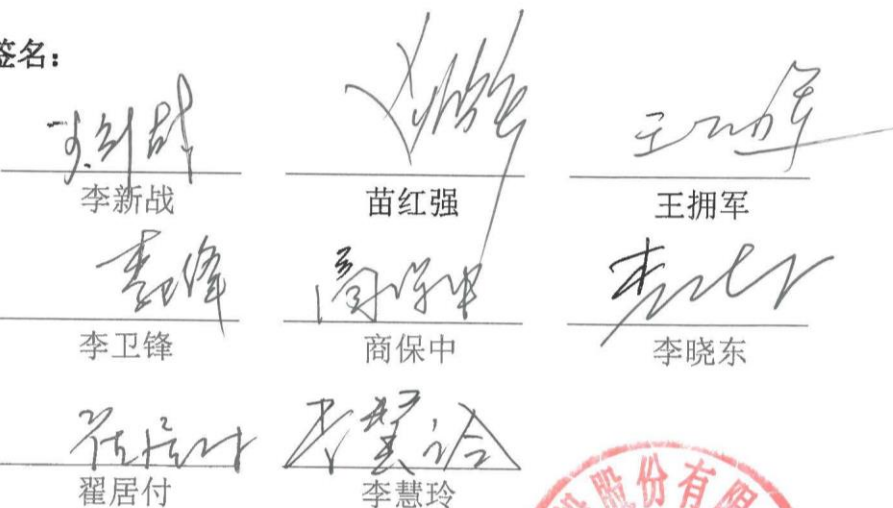 签名:
李新战 苗红强 王拥军
李卫锋 商保中 李晓东
翟居付 李慧玲
股份有限